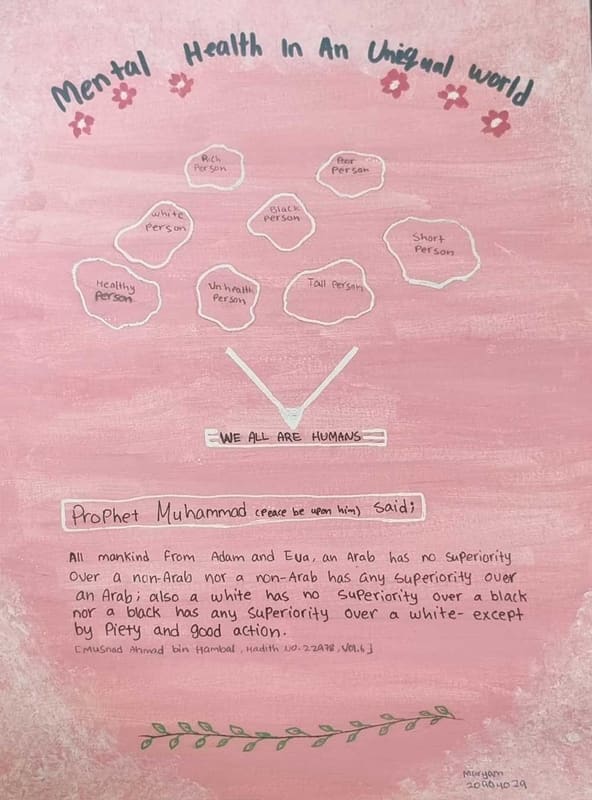 Mental Health In An Uniqual world
Rich
Person
Poor
Person
White
Person
Black
Person
Short
Person
Healthy
Person
Unhealth
Person
Tall Person
WE ALL ARE HUMANS
Prophet Muhammad (Peace be upon him) said;
All mankind from Adam and Eva, an Arab has no superiority
over a non-Arab nor a non-Arab has any superiority over
an Arab; also a white has no superiority over a black
nor a black has any superiority over a white- except
by Piety and good action.
[Musnad Ahmad bin Hambal, Hadith NO. 22978, Vol.6]
Maryam